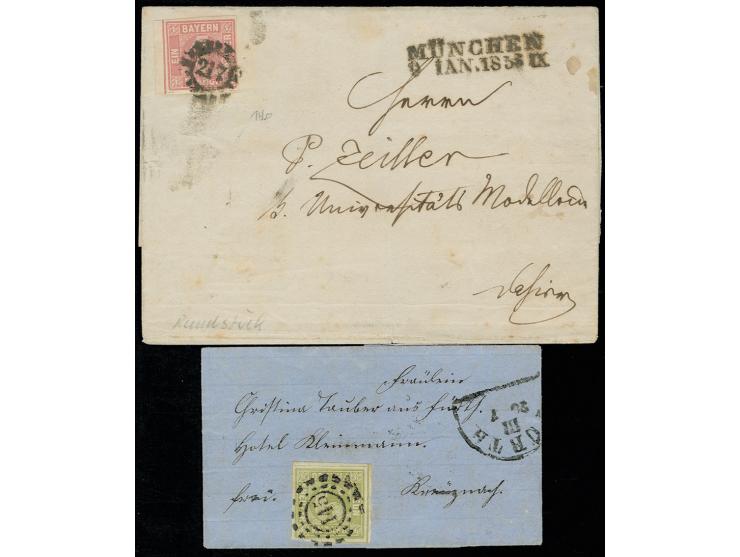 EIN BAYERN
217
MÜNCHEN
9 IAN.1858 IX
Herrn
P. Zeiller
k. Universitäts Modelleur
Dahier
Rundstück
Fräulein
Christina Tauber aus Fürth.
Hotel Kleinmann.
frei. Kreuznach.
FÜRTH
III
145